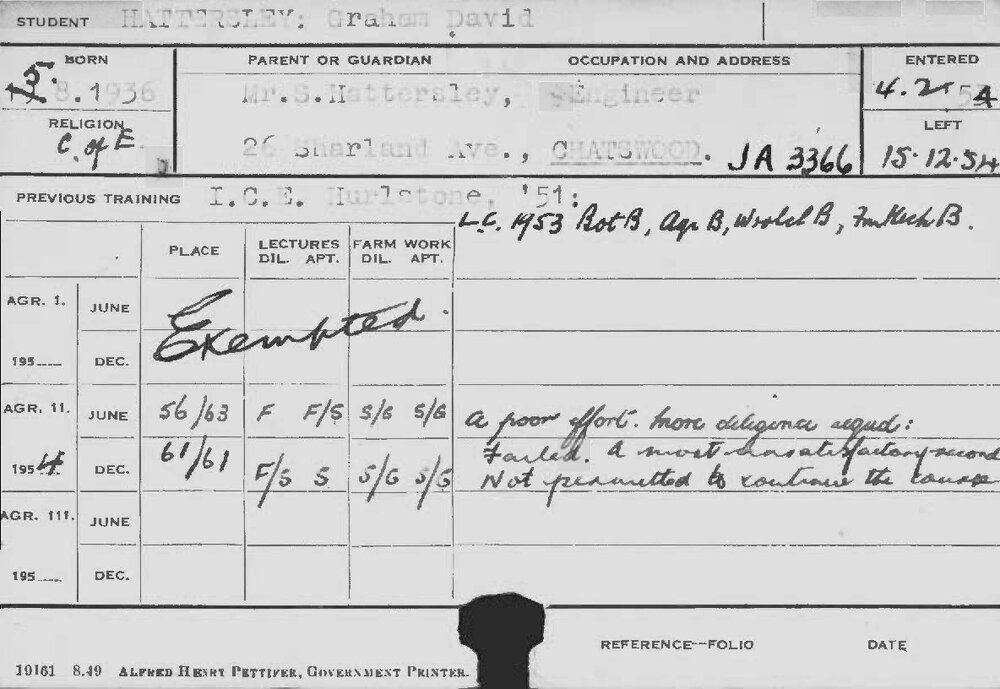 STUDENT HATTERSLEY: Graham David
BORN PARENT OR GUARDIAN OCCUPATION AND ADDRESS ENTERED
5.8.1936 Mr.S.Hattersley, Engineer 4.2.54
RELIGION LEFT
C. of E. 26 Sharland Ave., CHATSWOOD. JA 3366 15.12.54
PREVIOUS TRAINING I.C.E. Hurlstone, '51:
L.C. 1953 Bot B, Agr B, Woolcl B, Fm Mech B.
PLACE LECTURES FARM WORK
DIL. APT. DIL. APT.
AGR. 1. JUNE
Exempted.
195 DEC.
AGR. 11. JUNE 56/63 F F/S S/G S/G A poor effort. More diligence reqd:
Failed. A most unsatisfactory second
1954 DEC. 61/61 F/S S S/G S/G Not permitted to continue the course
AGR. 111. JUNE
195 DEC.
REFERENCE--FOLIO DATE
19161 8.49 ALFRED HENRY PETTIFER, GOVERNMENT PRINTER.